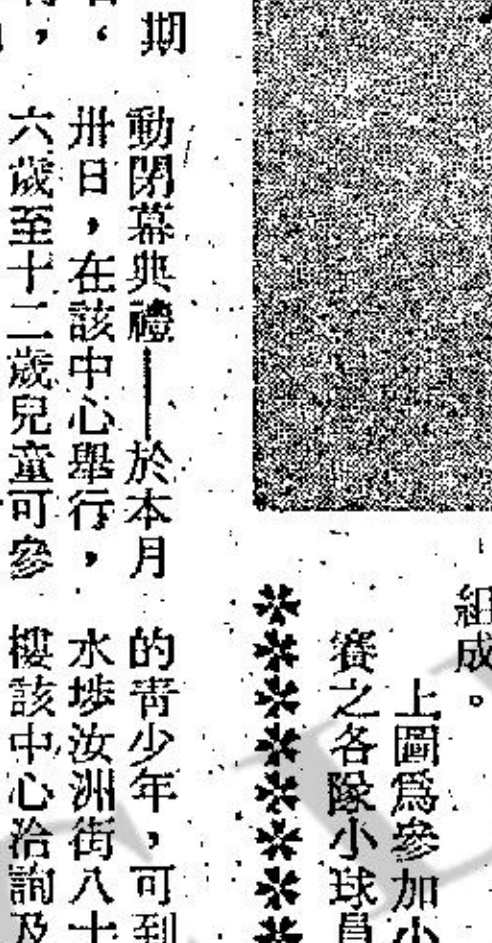 組成。
上圖爲參加小
賽之各隊小球員
期
動閉幕典禮——於本月
卅日，在該中心舉行，
六歲至十二歲兒童可參
的靑少年，可到
水埗汝洲街八十
樓該中心洽詢及